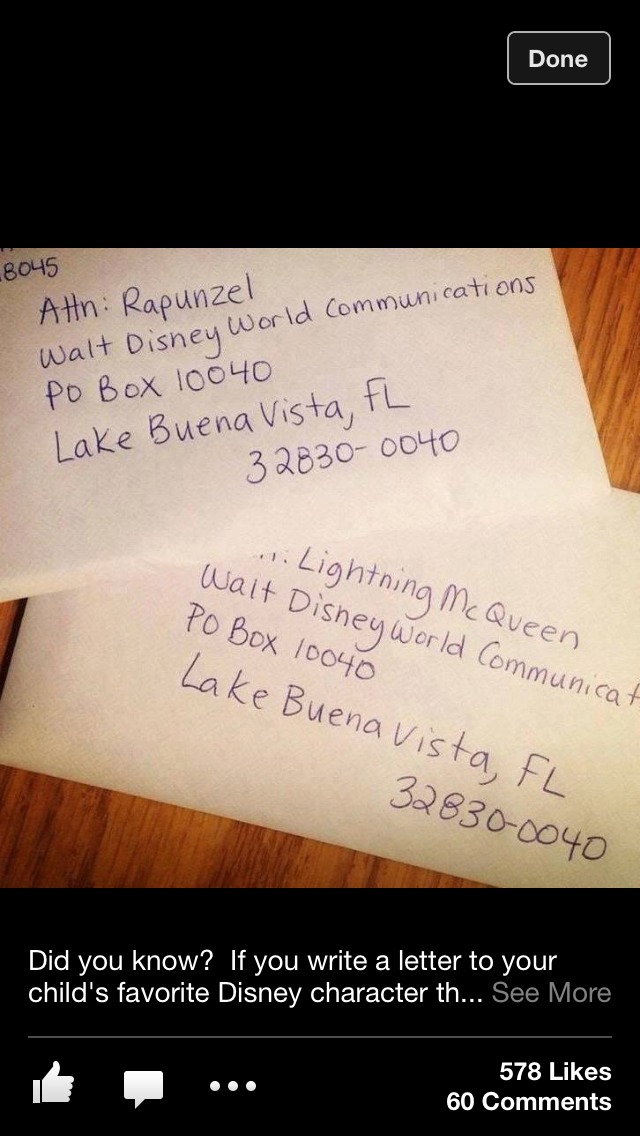 Done
8045
Attn: Rapunzel
Walt Disney World Communications
PO Box 10040
Lake Buena Vista, FL
32830-0040
: Lightning McQueen
Walt Disney World Communicat
PO Box 10040
Lake Buena Vista, FL
32830-0040
Did you know?  If you write a letter to your
child's favorite Disney character th... See More
578 Likes
60 Comments